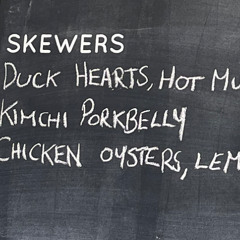 SKEWERS
DUCK HEARTS, HOT MU
KIMCHI PORKBELLY
CHICKEN OYSTERS, LEM